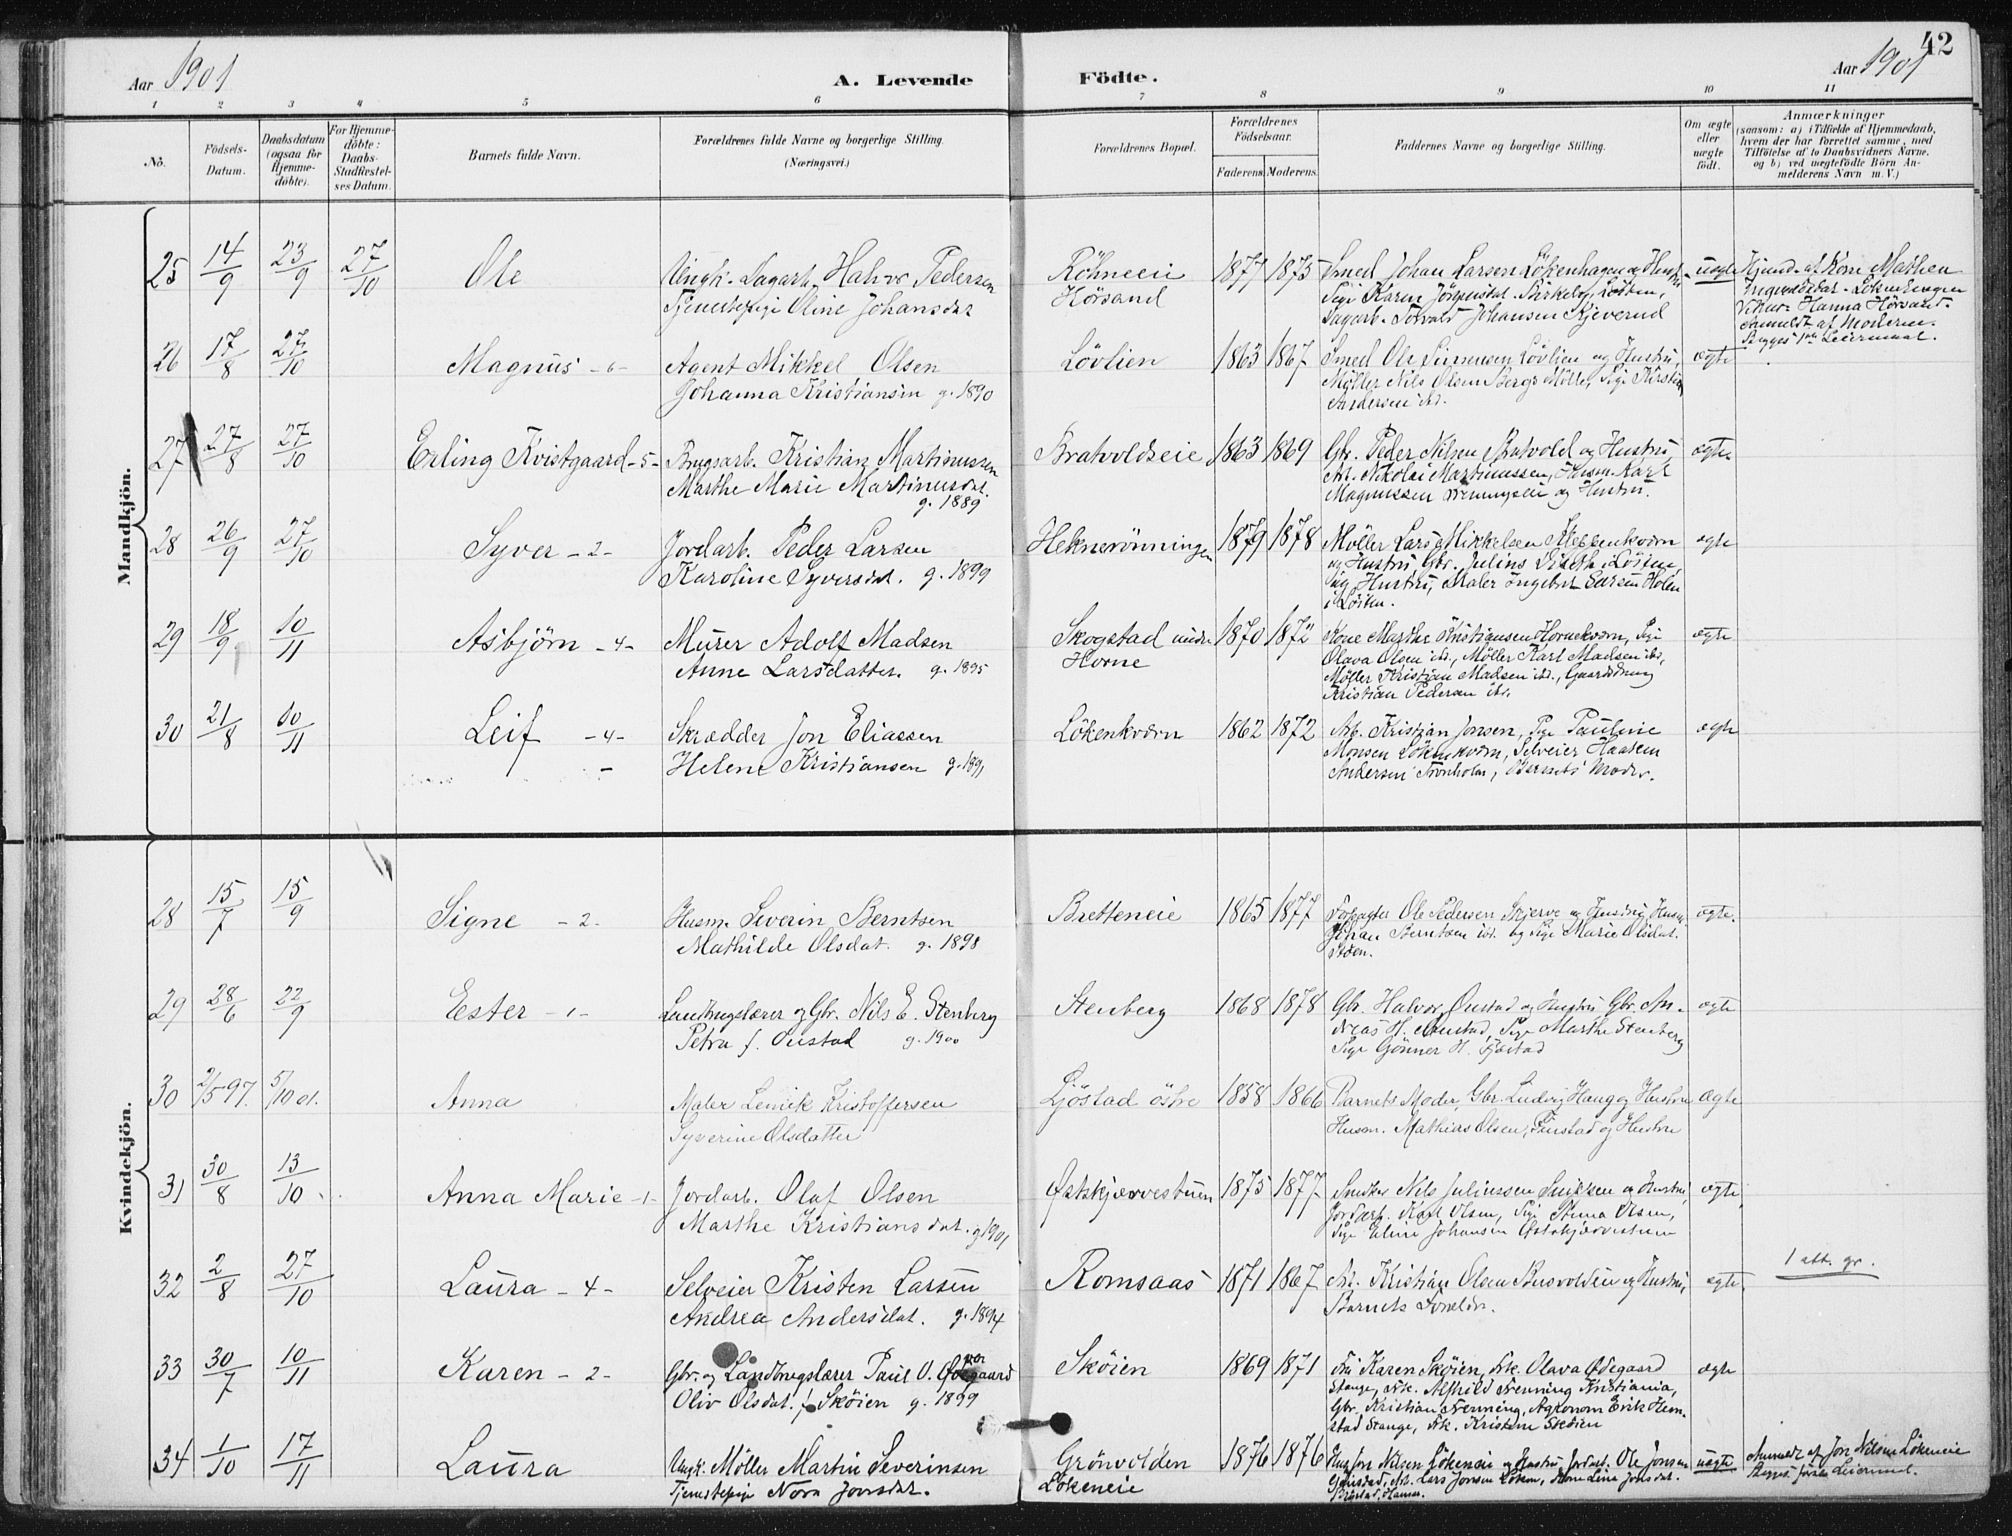 42
Aar 1901
A. Levende
Födte.
Aar 1901
1 2 3 4 5 6 7 8 9 10 11
No.
Födsels-
Datum.
Daabsdatum
(ogsaa for
Hjemme-
döbte).
For Hjemme-
döbte:
Daabs-
Stadfæstel-
ses Datum.
Barnets fulde Navn.
Forældrenes fulde Navne og borgerlige Stilling.
(Næringsvei.)
Forældrenes Bopæl.
Forældrenes
Födselsaar.
Faderens.
Moderens.
Faddernes Navne og borgerlige Stilling.
Om ægte
eller
uægte
födt.
Anmærkninger
(saasom: a) i Tilfælde af Hjemmedaab,
hvem der har forrettet samme, med
Tilföielse af to Daabsvidners Navne,
og b) ved uægtefödte Börn An-
melderens Navn m. V.)
Mandkjön.
25 14/9 23/9 27/10 Ole
Ungk. Dagarb. Halvor Pedersen
Tjenestepige Oline Johansdat
Röhneeie
Hörsand
1877 1875
Smed Johan Larsen Lökenhagen og Hustru
Pige Karen
Dagarb. Torvald Johansen Kjeverud
uægte
Hanna Hörsand.
Anmeldt af Moderen.
26 17/8 27/10 Magnus - 6 -
Agent Mikkel Olsen
Johanna Kristiansen g. 1890
Lövlien
1863 1867
Smed Ole Simensen Lövlien og Hustru,
Möller Nils Olsen Bergs Mölle, Pige Kirstine
Andersen ibd.
ægte
27 27/8 27/10 Erling Kvistgaard - 5 -
Brugsarb. Kristian Martinussen
Marthe Marie Martinusdat.
g. 1889
Bratvoldseie
1863 1869
Gbr. Peder Nilsen Bratvold og Hustru,
Arb. Nikolai Martinussen, Husm. Karl
Magnussen og Hustru.
ægte
28 26/9 27/10 Syver - 2 -
Jordarb. Peder Larsen
Karoline Syversdat. g. 1899
Heknerönningen
1879 1878
Möller Lars Mikkelsen Kleppenkværn
og Hustru, Gbr. Julius i Löiten,
og Hustru, Maler Ingebret Larsen Holen
i Löiten.
ægte
29 18/9 10/11 Asbjörn - 4 -
Murer Adolf Madsen
Anne Larsdatter. g. 1895
Skogstad under
Horne
1870 1872
Kone Marthe Kristiansen Hornekværn, Pige
Olava Olsen ibd., Möller Karl Madsen ibd.,
Möller Kristian Madsen ibd., Gaarddreng
Kristian Pedersen ibd.
ægte
30 21/8 10/11 Leif - 4 -
Skrædder Jon Eliassen
Helene Kristiansen g. 1891
Lökenkværn
1862 1872
Arb. Kristian Jonsen, Pige Pauline
Monsen Lökenkværn, Selveier Haaken
Andersen Tronholm, Barnets Moder.
ægte
Kvindekjön.
28 15/7 15/9 Signe - 2 -
Husm. Severin Berntsen
Mathilde Olsdat. g. 1898
Bretteneie
1865 1877
Forpagter Ole Pedersen Skjerve og Hustru, Husm.
Johan Berntsen ibd. og Pige Marie Olsdat.
Stöen.
ægte.
29 28/6 22/9 Ester - 1 -
Landbrugslærer og Gbr. Nils E. Stenberg
Petra f. Önstad g. 1900
Stenberg
1868 1878
Gbr. Halvor Önstad og Hustru Gbr. An-
dreas H. Önstad, Pige Marthe Stenberg
Pige Gönner H.
ægte
30 2/5 97. 5/10 01. Anna
Maler Lenick Kristoffersen
Syverine Olsdatter
Ljöstad östre
1858 1866
Barnets Moder, Gbr. Ludvig Haug og Hustru
Husm. Mathias Olsen, Finstad og Hustru
Ægte
31 30/8 13/10 Anna Marie - 1 -
Jordarb. Olaf Olsen
Marthe Kristiansdat. g 1901
Østskjærvestuen
1875 1877
Snedker Nils Juliussen Snikken og Hustru,
Jordarb. Karl Olsen, Pige Anna Olsen,
Pige Eline Johansen Østskjærvestuen
ægte
32 2/8 27/10 Laura - 4 -
Selveier Kristen Larsen
Andrea Andersdat. g. 1894
Romsaas
1871 1867
Arb. Kristian Olsen Busvolden og Hustru,
Barnets Forældre.
ægte
1 att. gr.
33 30/7 10/11 Karen - 2 -
Gbr. og Landbrugslærer Paul O. Ödegaard
Oliv Olsdat. f. Sköien g. 1899
Sköien
1869 1871
Fru Karen Sköien, Frk. Olava Ödegaard
Stange, Frk. Alfhild Frenning Kristiania,
Gbr. Kristian Frenning, Agronom Erik Hem-
stad Stange, Frk. Kristine Sköien
ægte
34 1/10 17/11 Laura
Ungk. Möller Martin Severinsen
Tjenestepige Nora Jonsdat.
Grönvolden
Lökeneie
1876 1876
Husm. Jon Nilsen Lökeneie og Hustru, Jordarb. Ole Jonsen
Arb. Lars Jonsen Löken, Kone Line Jonsdat.
uægte
Anmeldt af Jon Nilsen Lökeneie
Begges förste Leiermaal.